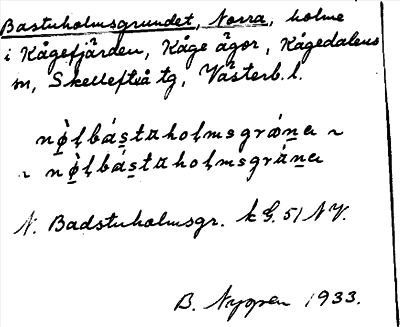 Bastuholmsgrundet, Norra, holme
i Kågefjärden, Kåge ägor, Kågedalens
sn, Skellefteå tg, Västerb. l.
N. Badstuholmsgr. k G. 51 NV.
B. Nygren 1933.